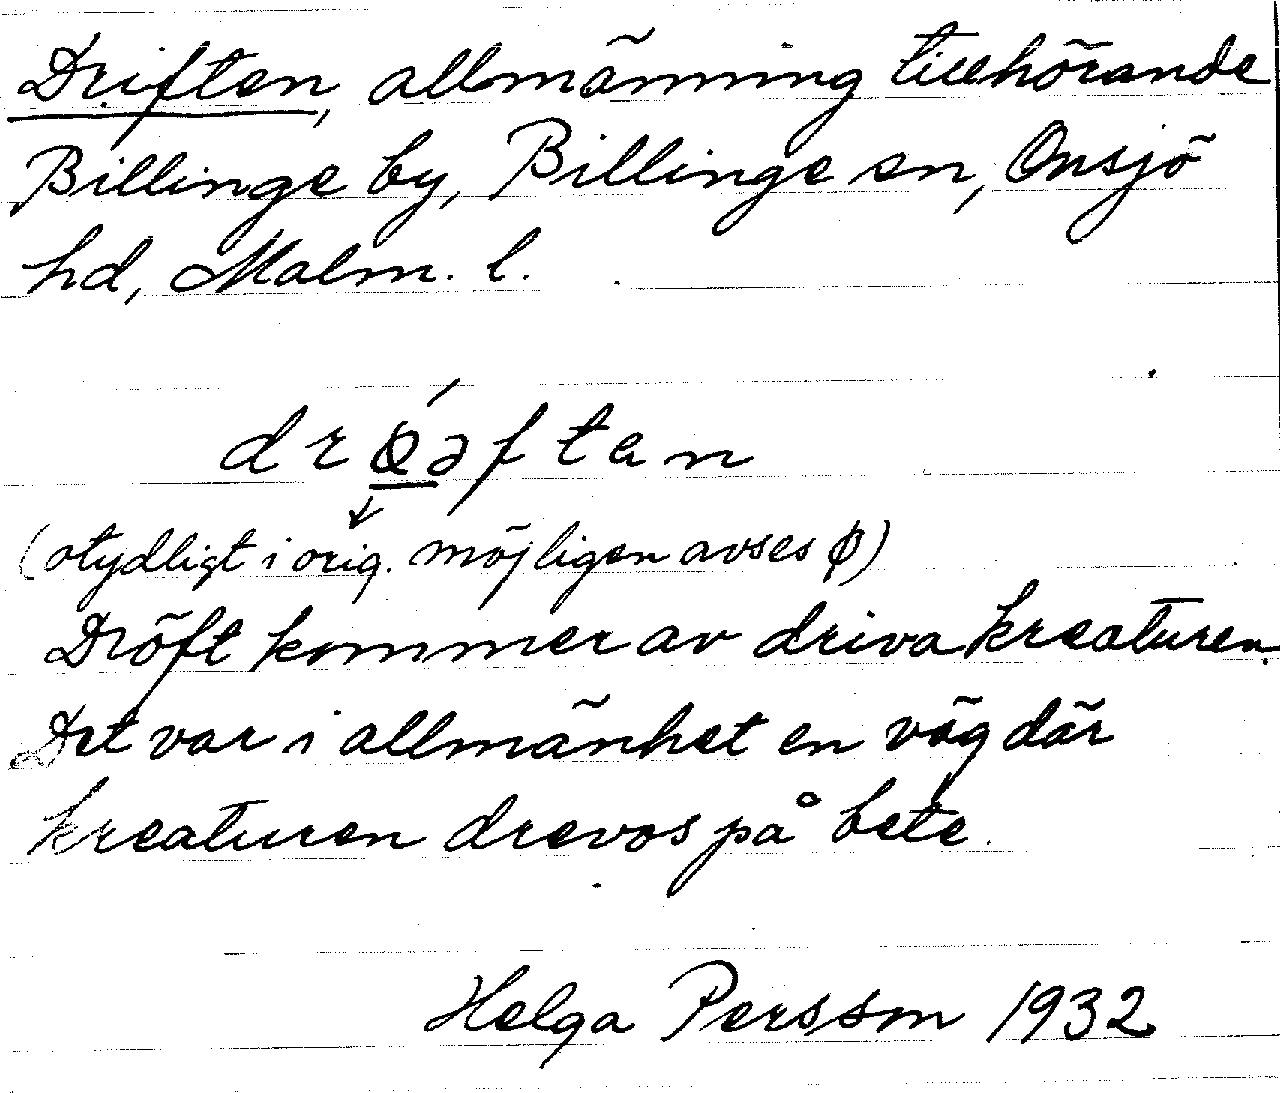 Driften, allmänning tillhörande
Billinge by, Billinge sn, Onsjö
hd, Malm. l.
drǿəften
(otydligt i orig. möjligen avses ϕ)
Dröft kommer av driva kreaturen.
Det var i allmänhet en väg där
kreaturen drevos på bete.
Helga Persson 1932